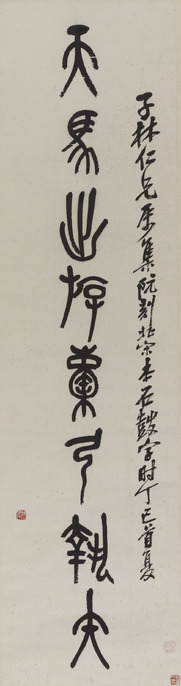 子林仁兄属集阮刻北宋本石鼓字时丁巳首夏
天馬出斿橐弓執矢